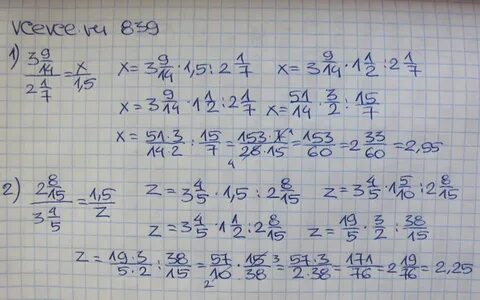 vcevce.ru 839
1) 3 9/14 / 2 1/7 = x/1,5 x = 3 9/14 · 1,5 : 2 1/7 x = 3 9/14 · 1 1/2 : 2 1/7
x = 3 9/14 · 1 1/2 : 2 1/7 x = 51/14 · 3/2 : 15/7
x = 51·3/14·2 : 15/7 = 153·7 1/4 28·15 = 153/60 = 2 33/60 = 2,55
2) 2 8/15 / 3 4/5 = 1,5/z z = 3 4/5 · 1,5 : 2 8/15 z = 3 4/5 · 1 5/10 : 2 8/15
z = 3 4/5 · 1 1/2 : 2 8/15 z = 19/5 · 3/2 : 38/15
z = 19·3/5·2 : 38/15 = 57/10 2 · 15 3/38 = 57·3/2·38 = 171/76 = 2 19/76 = 2,25